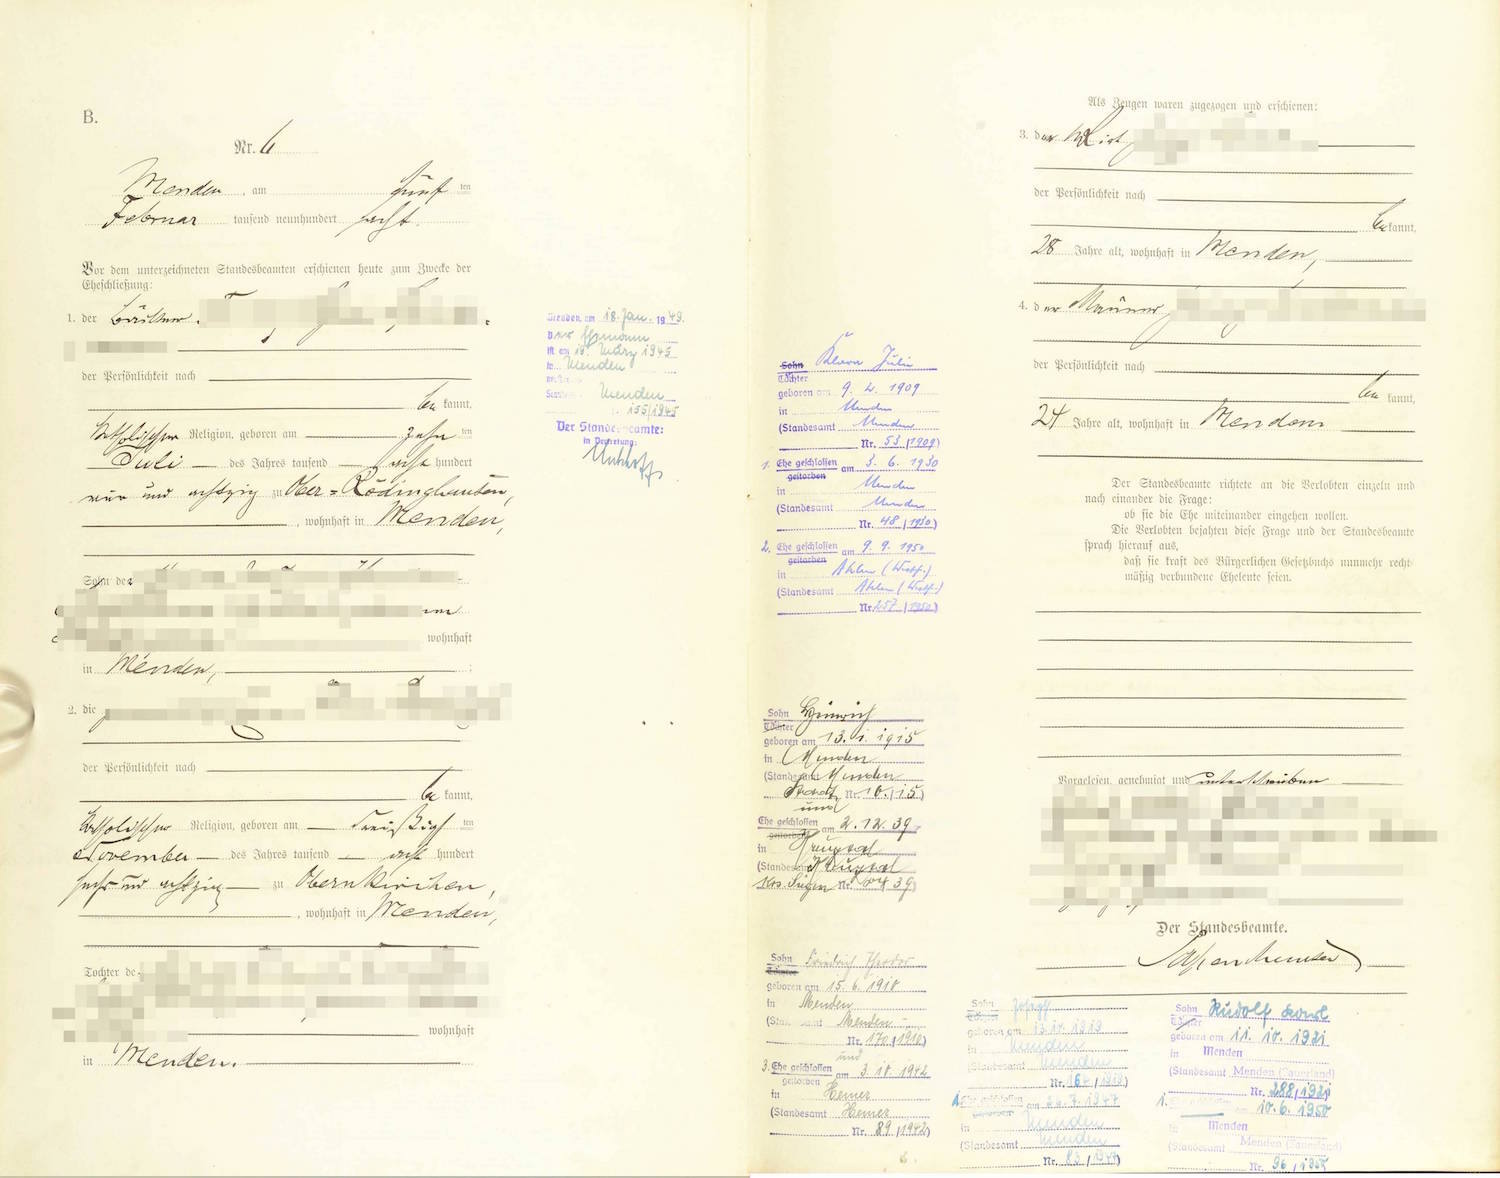 B.
Nr. 6
Menden, am fünf ten
Februar tausend neunhundert acht.
Vor dem unterzeichneten Standesbeamten erschienen heute zum Zwecke der
Eheschließung:
1. der
der Persönlichkeit nach
be kannt,
katholischer Religion, geboren am zehn ten
Juli des Jahres tausend acht hundert
vier und achtzig zu Ober-Rödinghausen,
, wohnhaft in Menden,
Sohn des
wohnhaft
in Menden, ;
2. die
der Persönlichkeit nach
be kannt,
katholischer Religion, geboren am dreißig ten
November des Jahres tausend acht hundert
sechs und achtzig zu Obernkirchen,
, wohnhaft in Menden,
Tochter de
wohnhaft
in Menden.
Menden, am 18. Jan. 1949.
Der Ehemann
ist am 10. März 1945
in Menden
Menden
155/1945
Der Standesbeamte:
in Vertretung:
Als Zeugen waren zugezogen und erschienen:
3. der Wirt
der Persönlichkeit nach
be kannt,
28 Jahre alt, wohnhaft in Menden,
4. der Maurer
der Persönlichkeit nach
be kannt,
24 Jahre alt, wohnhaft in Menden
Der Standesbeamte richtete an die Verlobten einzeln und
nach einander die Frage:
ob sie die Ehe miteinander eingehen wollen.
Die Verlobten bejahten diese Frage und der Standesbeamte
sprach hierauf aus,
daß sie kraft des Bürgerlichen Gesetzbuchs nunmehr recht-
mäßig verbundene Eheleute seien.
Vorgelesen, genehmigt und unterschrieben
Der Standesbeamte.
Sohn Klara Julia
Tochter
geboren am 9. 2. 1909
in Menden
(Standesamt Menden
Nr. 53 / 1909)
1. Ehe geschlossen am 3. 6. 1930
gestorben
in Menden
(Standesamt Menden
Nr. 48 / 1930)
2. Ehe geschlossen am 9. 9. 1950
gestorben
in Ahlen (Westf.)
(Standesamt Ahlen (Westf.)
Nr. 257 / 1950)
Sohn Heinrich
Tochter
geboren am 13. 1. 1915
in Menden
(Standesamt Menden
Nr. 10 / 15)
und
Ehe geschlossen am 2. 12. 39
gestorben
in
(Standesamt
Krs. Siegen Nr. 39)
Sohn Friedrich Theodor
Tochter
geboren am 15. 6. 1910
in Menden
(Standesamt Menden
Nr. 170 / 1910)
und
3. Ehe geschlossen am 3. 10. 1942
gestorben
in Hemer
(Standesamt Hemer
Nr. 89 / 1942)
Sohn Josef
Tochter
geboren am 1919
in Menden
(Standesamt Menden
Nr. 164 / 1919)
1. Ehe geschlossen am 26. 7. 1947
gestorben
in Menden
(Standesamt Menden
Nr. 83 / 1947)
Sohn Rudolf Karl
Tochter
geboren am 11. 10. 1921
in Menden
(Standesamt Menden (Sauerland)
Nr. 288 / 1921
1. Ehe geschlossen am 10. 6. 1950
in Menden
(Standesamt Menden (Sauerland)
Nr. 96 / 1950